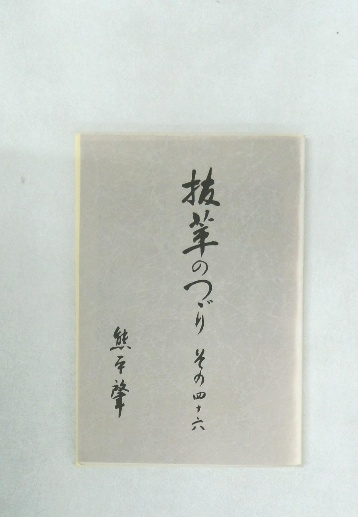 抜萃のつゞり その四十六
熊平肇